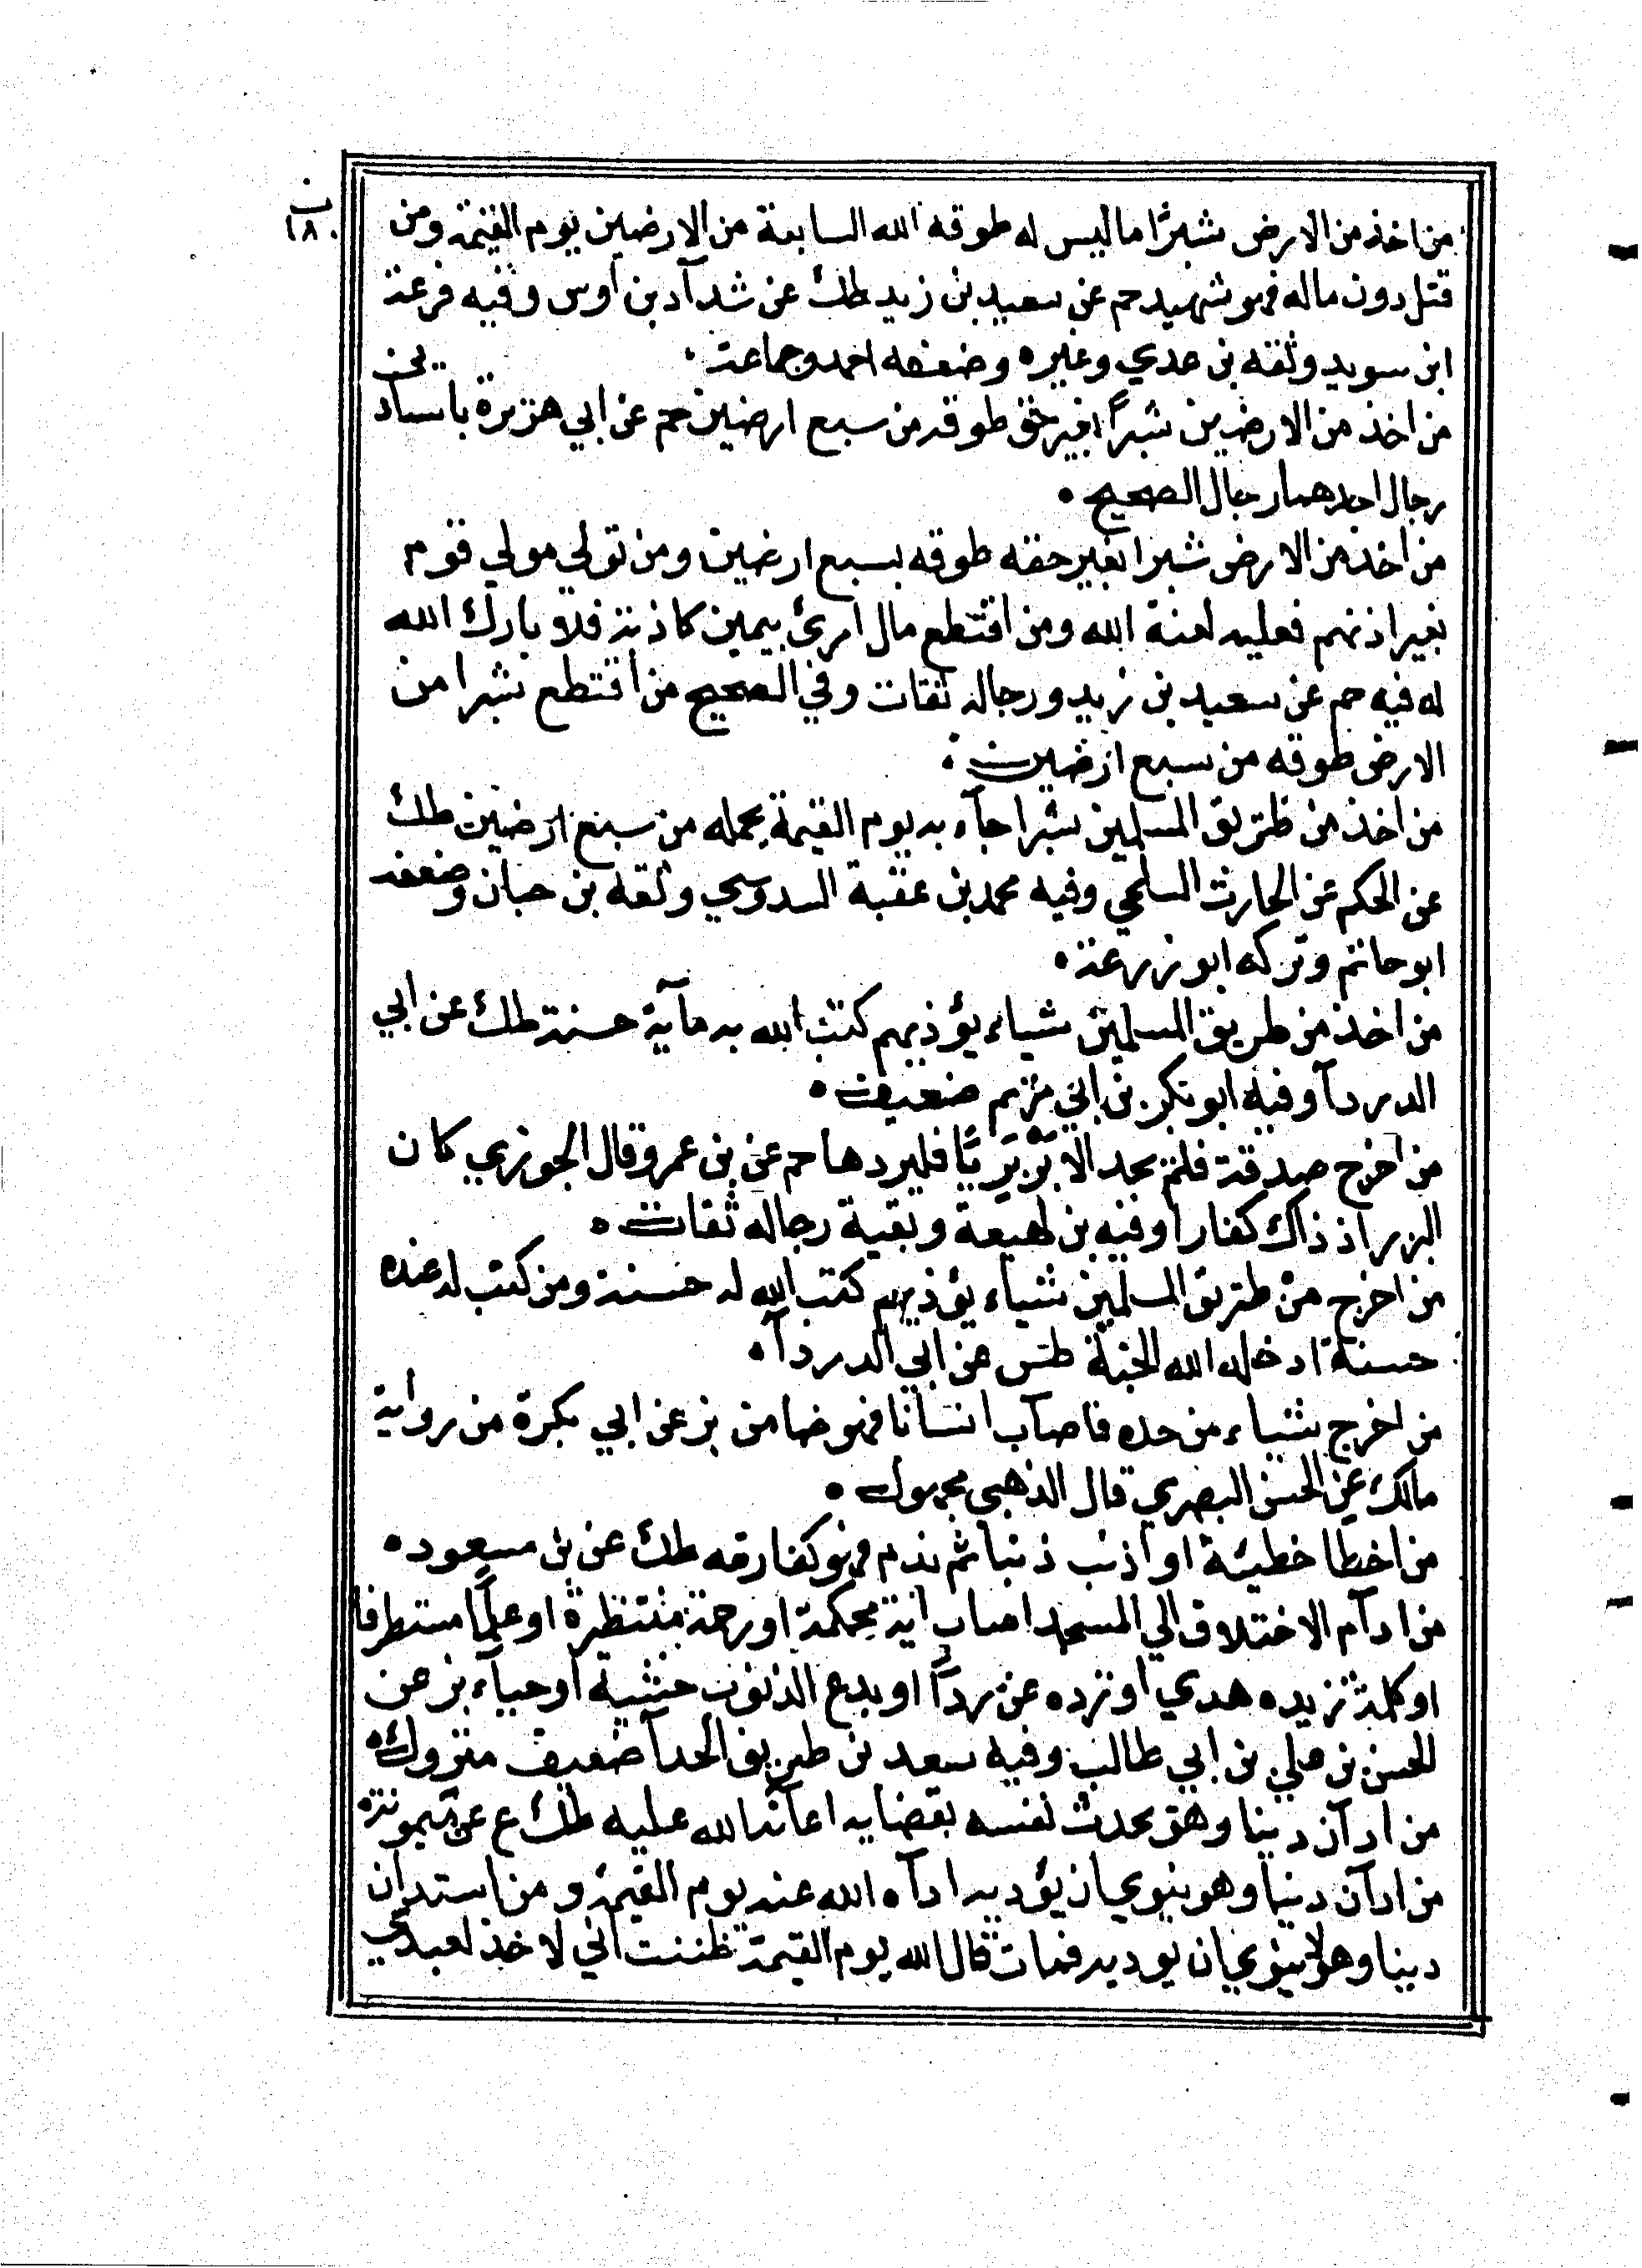 ن
١٨٠
من اخذ من الارض شبرًا ما ليس له طوقه الله السابعة من الارضين يوم القيمة ومن
قتل دون ماله فهو شهيد حم عن سعيد بن زيد طك عن شدآد بن اوس وفيه فزعة
ابن سويد وثقه بن عدي وغيره وضعفه احمد وجماعت
من اخذ من الارضين شبراً بغير حق طوقه من سبع ارضين حم عن ابي هريرة باسنادين
رجال احدهما رجال الصحيح ٠
من اخذ من الارض شبرا بغير حقه طوقه بسبع ارضين ومن تولي مولي قوم
بغير اذنهم فعليه لعنة الله ومن اقتطع مال امرئ بيمين كاذبة فلا بارك الله
له فيه حم عن سعيد بن زيد ورجاله ثقات وفي الصحيح من اقتطع شبرا من
الارض طوقه من سبع ارضين ٠
من اخذ من طريق المسلمين شبرا جآء به يوم القيمة يحمله من سبع ارضين طك
عن الحكم عن الحارث السلمي وفيه محمد بن عقبة السدوسي وثقه بن حبان وضعفه
ابو حاتم وتركه ابو زرعة ٠
من اخذ من طريق المسلمين شياء يؤذيهم كتب الله به مآية حسنة طك عن ابي
الدردآ وفيه ابو بكر بن ابي مريم ضعيف ٠
من اخرج صدقة فلم يجد الا بربريًّا فليردها حم عن بن عمرو قال الجوزي كان
البربر اذ ذاك كفارا وفيه بن لهيعة وبقية رجاله ثقات ٠
من اخرج من طريق المسلمين شياء يؤذيهم كتب الله له حسنة ومن كتب له عنده
حسنة ادخله الله الجنة طس عن ابي الدردآ ٠
من اخرج بشياء من حده فاصآب انسانا فهو ضامن بز عن ابي بكرة من رواية
مالك عن الحسن البصري قال الذهبي مجهول ٠
من اخطا خطيئة او اذنب ذنبا ثم ندم فهو كفارته طك عن بن مسعود ٠
من ادآم الاختلاف الي المسجد اصاب اية محكمة او رحمة منتظرة او علمًا مستطرفا
او كلمة تزيده هدي او ترده عن ردآ او يدع الذنوب خشية او حياء بز عن
الحسن بن علي بن ابي طالب وفيه سعد بن طريق الحدآ ضعيف متروك ٠
من ادآن دينا وهو يحدث نفسه بقضايه اعآنه الله عليه طك ع عن ميمونة
من ادآن دينا وهو ينوي ان يؤديه ادآه الله عنه يوم القيمة ومن استدان
دينا وهو لا ينوي ان يوديه فمات قال الله يوم القيمة ظننت اني لا خذ لعبدي